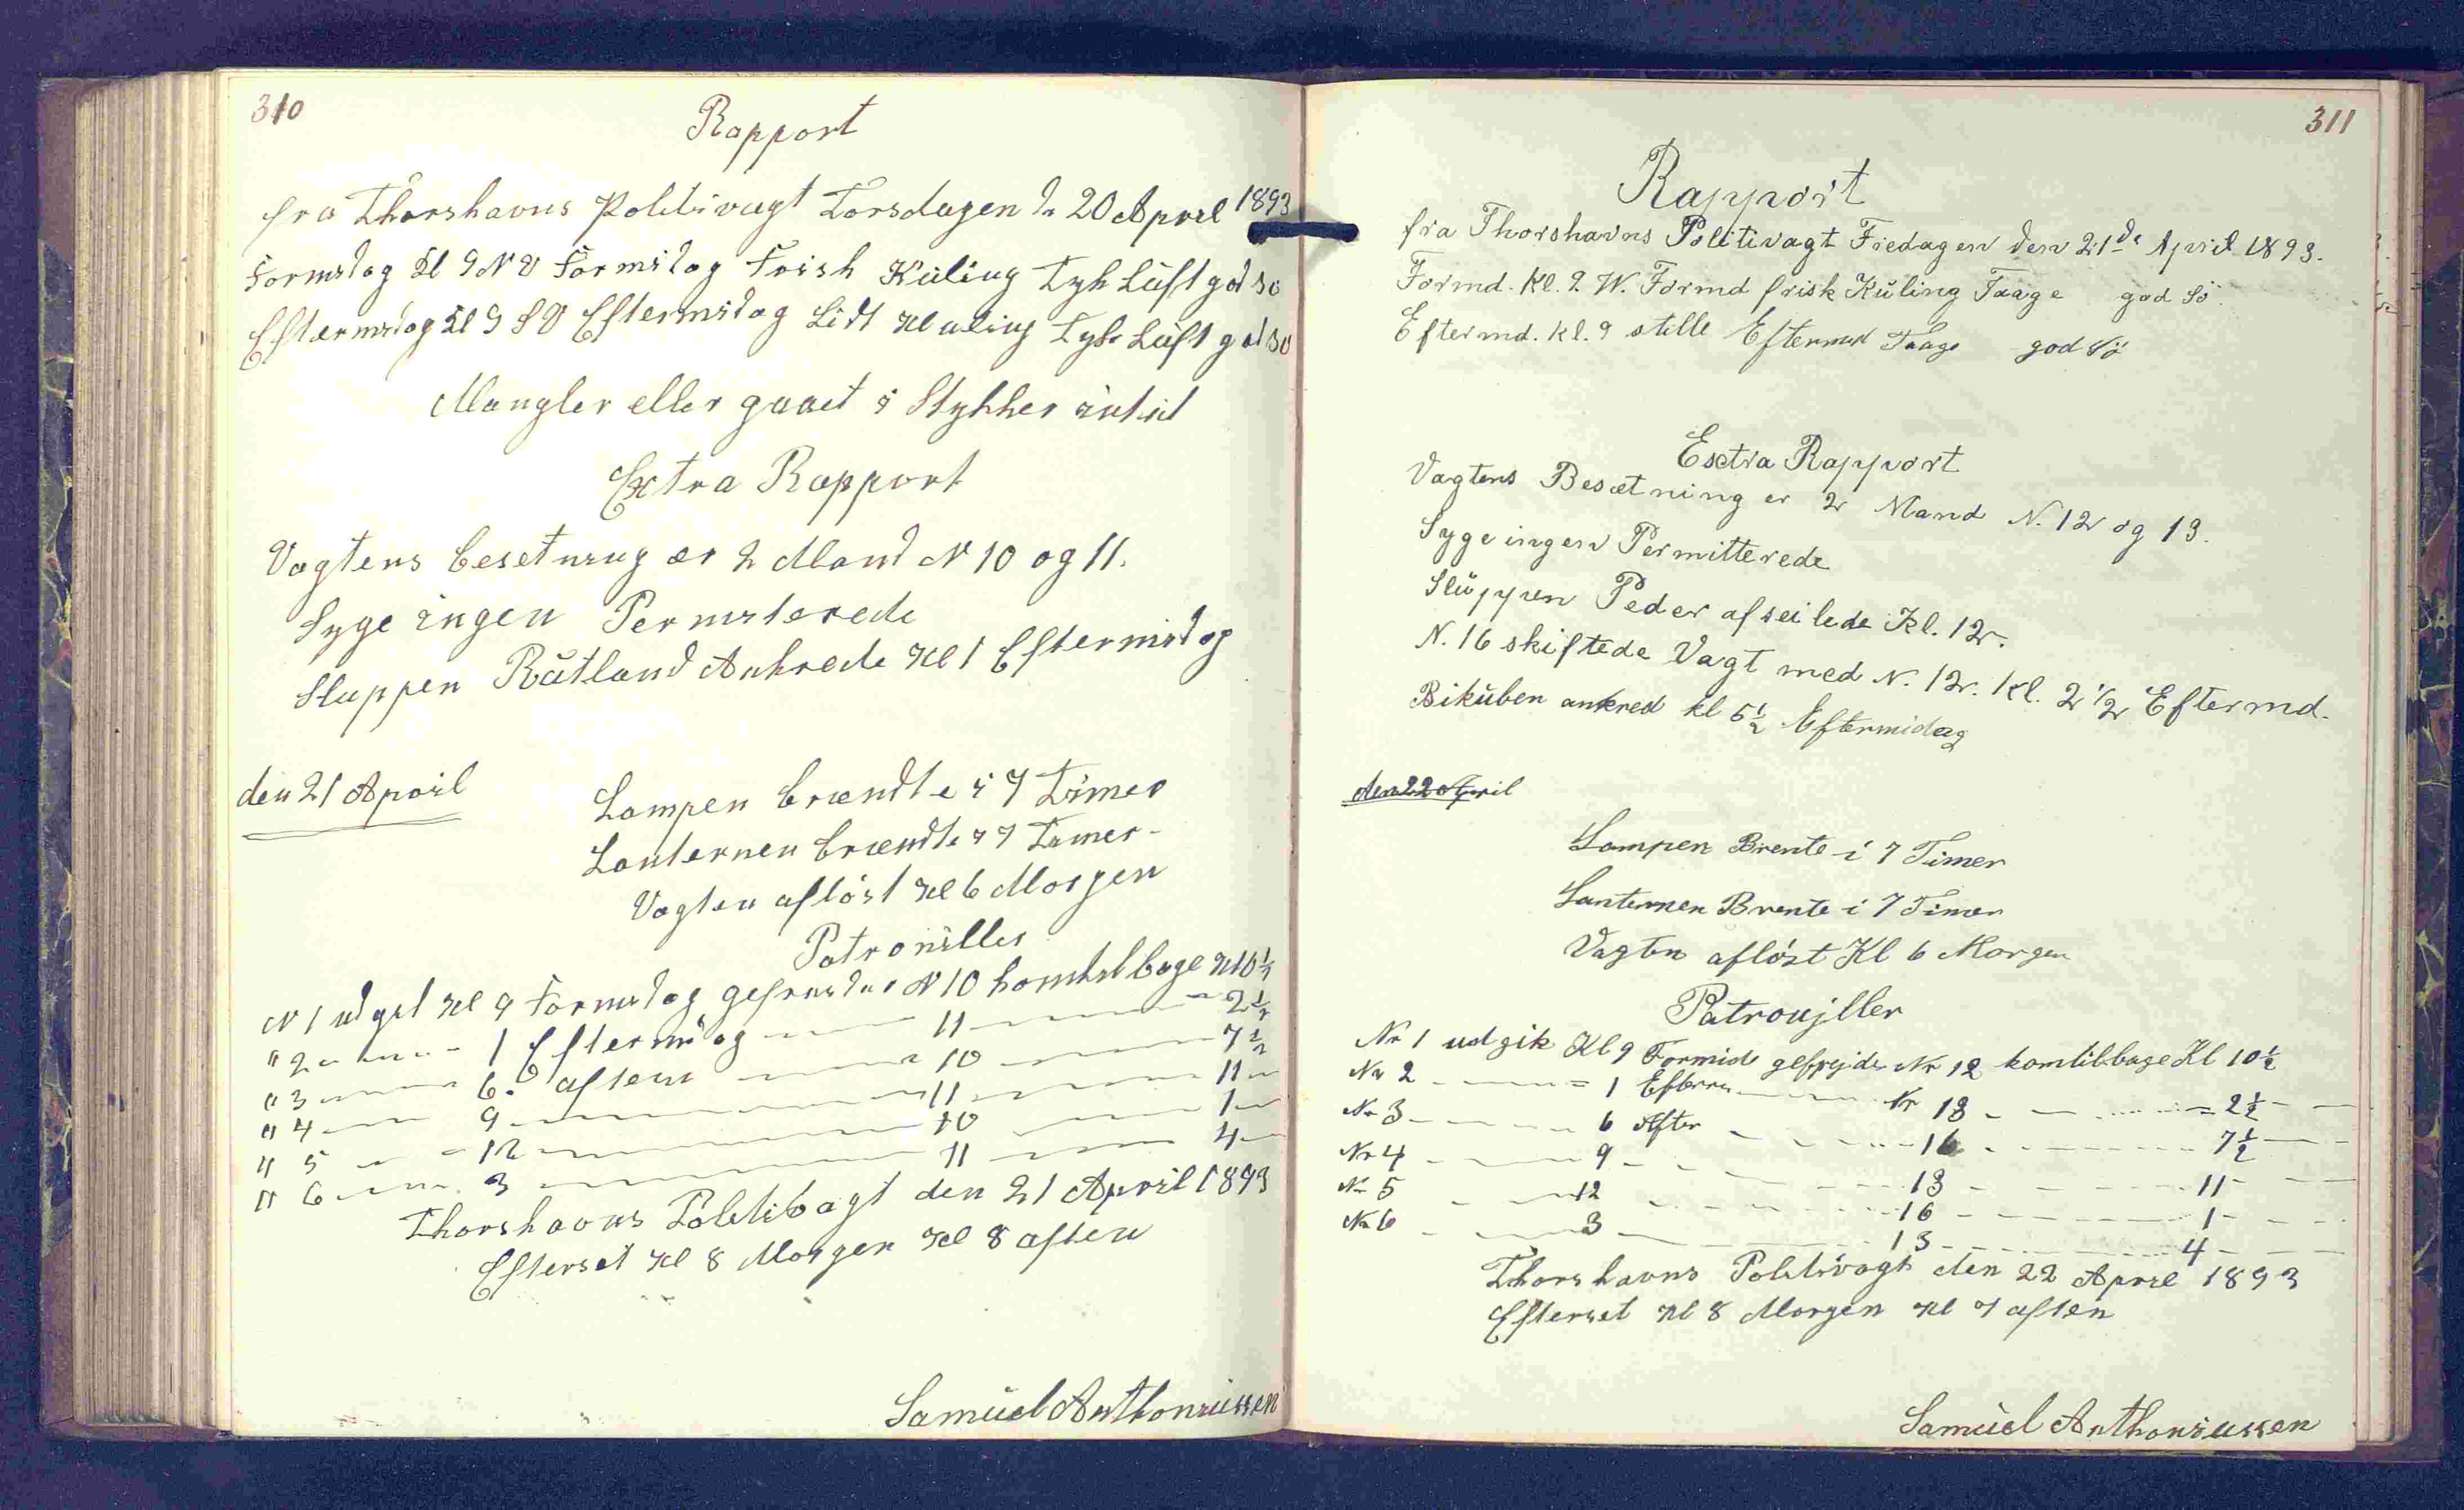 310
Rapport
fra Thorshavns Politivagt Torsdagen d. 20 April 1893
Formidag Kl 9 NV Formidag Frisk Kuling Tyk Luft god So
Eftermidag Kl 9 SV Eftermidag Lidt Kuling Tyk Luft god So
Mangler eller gaaet i Stykker intid
Extra Rapport
Vagtens besetning er 2 Mand N 10 og 11.
Syge ingen Permiterede
Sluppen Rutland Ankrede Kl 1 Eftermidag
den 21 April
Lampen brændte i 7 Timer
Lanternen brændte i 7 Timer
Vagten afløst Kl 6 Morgen
Patroniller
N 1 udgik Kl 9 Formidag gefreider N 10 komtilbage Kl 10½
" 2 - - 1 Eftermidag - 11 - 2½
" 3 - 6 aften - 10 - 7½
" 4 - 9 - 11 - 11 -
" 5 - 12 - 10 - 1 -
" 6 - 3 - 11 - 4 -
Thorshavns Politivagt den 21 April 1893
Efterset Kl 8 Morgen Kl 8 aften
Samuel Anthoniussen
311
Rapport
fra Thorshavns Politivagt Fredagen den 21de April 1893.
Formd. Kl. 9 W. Formd frisk Kuling Taage god Sö.
Eftermd. Kl. 9 stille Eftermd Taage god Sö
Esctra Rapport
Vagtens Besætning er 2 Mand N. 12 og 13.
Syge ingen Permitterede
Sluppen Peder afseilede Kl. 12.
N. 16 skiftede Vagt med N. 12. Kl. 2 1/2 Eftermd.
Bikuben ankred kl 5½ Eftermidag
den 22 April
Lampen Brente i 7 Timer
Lanternen Brente i 7 Timer
Vagten afløst Kl 6 Morgen
Patroujller
Nr 1 udgik Kl 9 Formid gefrejder Nr 12 komtilbage Kl 10½
Nr 2 - = 1 Efterm - Nr 13 - = 2½ -
Nr 3 - 6 Aften - 16 - 7½ -
Nr 4 - 9 - 13 - 11 -
Nr 5 - 12 - 16 - 1 -
Nr 6 - 3 - 13 - 4 -
Thorshavns Politivagt den 22 April 1893
Efterset Kl 8 Morgen Kl 7 aften
Samuel Anthoniussen